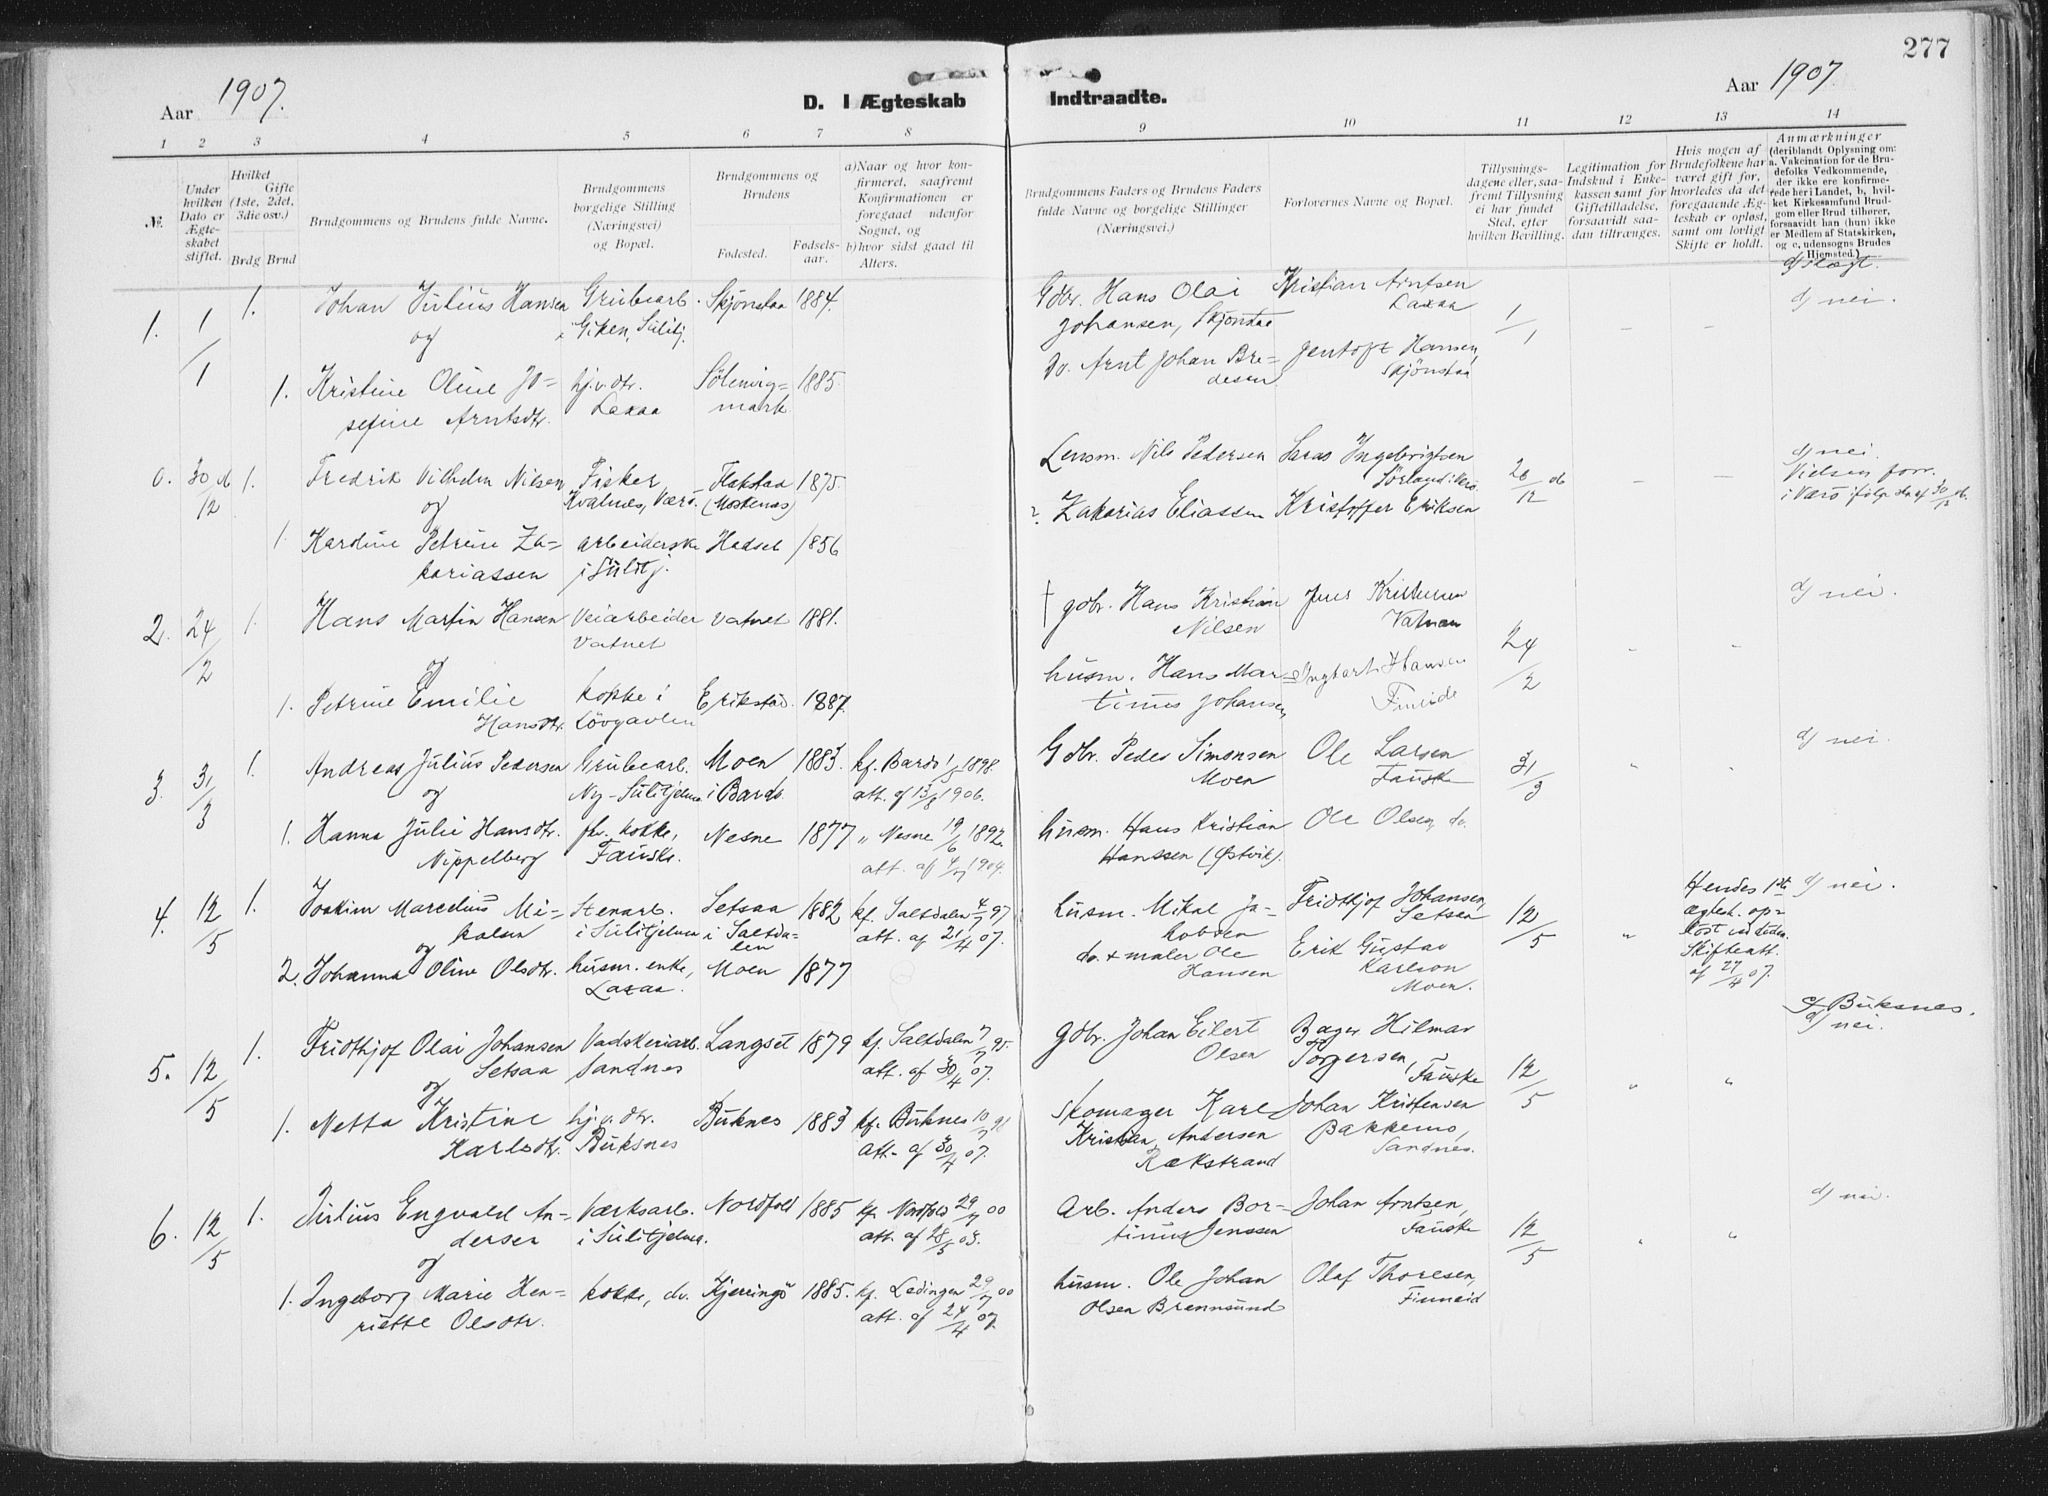 277
Aar 1907.
D. I Ægteskab Indtraadte.
Aar 1907
1 2 3 4 5 6 7 8 9 10 11 12 13 14
№.
Under hvilken Dato er Ægteskabet stiftet.
Hvilket Gifte (1ste, 2det, 3die osv.)
Brdg Brud
Brudgommens og Brudens fulde Navne.
Brudgommens borgelige Stilling (Næringsvei) og Bopæl.
Brudgommens og Brudens
Fødested.
Fødselsaar.
a) Naar og hvor konfirmeret, saafremt Konfirmationen er foregaaet udenfor Sognet, og
b) hvor sidst gaaet til Alters.
Brudgommens Faders og Brudens Faders fulde Navne og borgelige Stillinger (Næringsvei)
Forlovernes Navne og Bopæl.
Tillysningsdagene eller, saafremt Tillysning ei har fundet Sted, efter hvilken Bevilling.
Legitimation for Indskud i Enkekassen samt for Giftetilladelse, forsaavidt saadan tiltrænges.
Hvis nogen af Brudefolkene har været gift før, hvorledes da det foregaaende Ægteskab er opløst, samt om lovligt Skifte er holdt.
Anmærkninger (deriblandt Oplysning om: a. Vakcination for de Brudefolks Vedkommende, der ikke ere konfirmerede her i Landet, b, hvilket Kirkesamfund Brudgom eller Brud tilhører, forsaavidt han (hun) ikke er Medlem af Statskirken, og c, udensogns Brudes Hjemsted.)
1. 1/1 1. Johan Julius Hansen Grubearb. Skjønstaa 1884. Gdbr. Hans Olai Kristian Arntsen 1/1 - - d) nei.
og i Giken, Sulitj. Johansen, Skjønstaa Laxaa
1. Kristine Oline Jo= hj.v.dtr. Sölvvig= 1885. Do. Arnt Johan Bre= Jentoft Hansen,
sefine Arntsdtr. Laxaa mark desen Skjönstaa
0. 30/12 d 1. Fredrik Vilhelm Nilsen Fisker, Flakstaa 1875. Lensm. Nils Pedersen Saras Ingebrigtsen 26/12 06 - - d) nei.
og Kvalnes, Værö. (Moskenes) Sörland i Værö Vielsen forr.
i Værö
1. Kardine Petrine Za= arbeiderske Hadsel 1856 Zakarias Eliassen Kristoffer Eriksen
kariassen i Sulitj.
2. 24/2 1. Hans Martin Hansen Veiarbeider Vatnet 1881. † gdbr. Hans Kristian Jens Kristensen 24/2 d) nei.
og Vatnet Nilsen Vatnan
1. Petrine Emilie kokke i Erikstad. 1887. husm. Hans Mar= Ingbart Hansen
Hansdtr. Lövgavlen tinus Johansen, Fineide
3. 31/3 1. Andreas Julius Pedersen Grubearb. Moen 1883. kf. Bardo 1898. Gdbr. Peder Simonsen Ole Larsen 31/3 d) nei.
og Ny-Sulitjelma i Bardo. att. af 13/8 1906. Moen Fauske
1. Hanna Julie Hansdtr. fhv. kokke, Nesne 1877 " Nesne 19/6 1892. husm. Hans Kristian Ole Olsen, do.
Nippelberg Fauske. att. af 1904. Hanssen (Østvik).
4. 12/5 1. Joakim Marcelius Mi= Stenarb. Setsaa 1882 kf. Saltdalen 4/7 97 husm. Mikal Ja= Fridthjof Johansen, 12/5 " Hendes 1ste d) nei.
kalsen i Sulitjelma i Saltda= att. af 21/4 07. kobsen Setsaa ægtesk. op=
og len löst ved döden.
2. Johanna Oline Olsdtr. husm. enke, Moen 1877 do. + maler Ole Erik Gustav Skifteatt.
Laxaa. Hansen Karlson af 27/4 07.
Moen.
5. 12/5 1. Fridthjof Olai Johansen Vadskeriarb. Langset 1879 kf. Saltdalen 7/7 95. gdbr. Johan Eilert Bager Hilmar 12/5 " " c) Buksnes.
Setsaa Sandnes att. af 30/4 07. Olsen Torgersen, d) nei.
og Fauske
1. Netta Kristine hj.v.dtr. Buknes 1883 kf. Buknes 10/7 98 Skomager Karl Johan Kristensen
Karlsdtr. Buksnes att. af 30/4 07. Kristian Andersen Bakkemo,
Rækstrand Sandnes.
6. 12/5 1. Julius Engvald An= Værksarb. Nordfold 1885 kf. Nordfold 29/7 00 Arb. Anders Bor= Johan Arntsen, 12/5 " " d) nei.
dersen i Sulitjelma. att. af 28/3 03. tinus Jenssen Fauske
og
1. Ingeborg Marie Hen= kokke, do. Kjerringö 1885. kf. Lødingen 29/7 00 husm. Ole Johan Olaf Thoresen,
riette Olsdtr. att. af 24/4 07. Olsen Brennsund Finneid